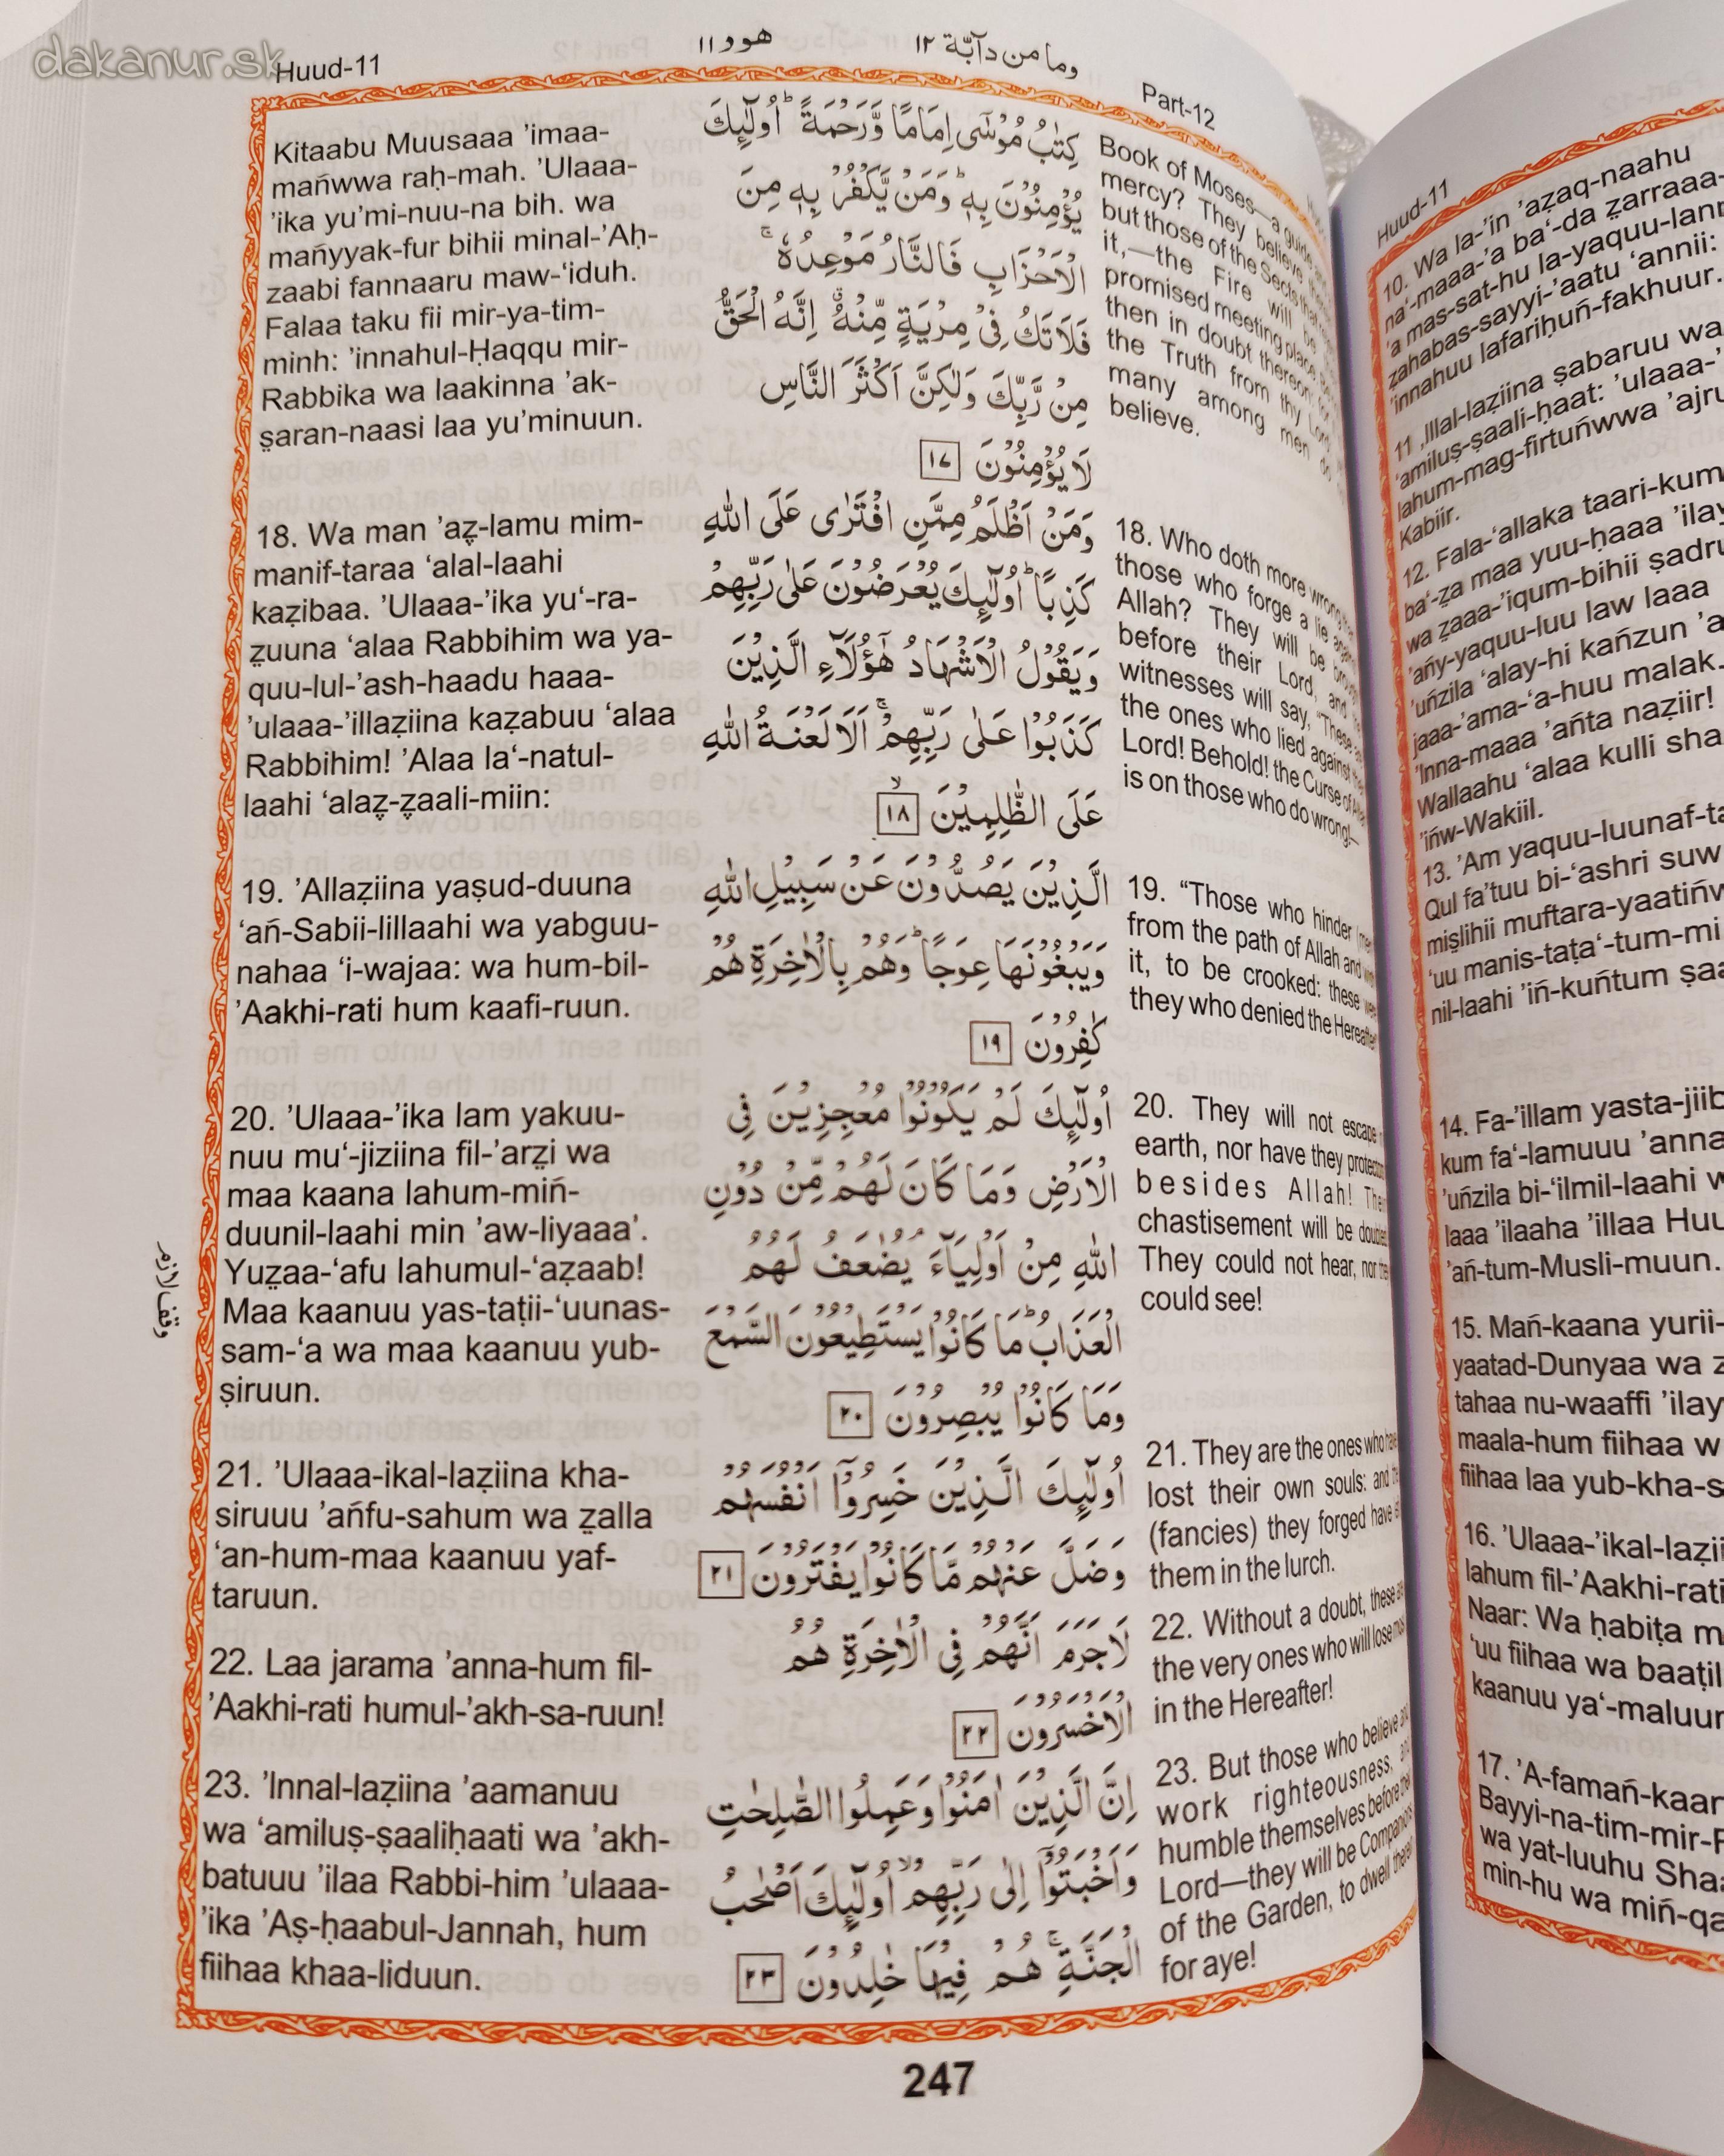 dakanur.sk
Huud-11
هود ۱۱
وما من دآبّة ۱۲
Part-12
Kitaabu Muusaaa ’imaa-
mańwwa raḥ-mah. ’Ulaaa-
’ika yu’mi-nuu-na bih. wa
mańyyak-fur bihii minal-’Aḥ-
zaabi fannaaru maw-‘iduh.
Falaa taku fii mir-ya-tim-
minh: ’innahul-Ḥaqqu mir-
Rabbika wa laakinna ’ak-
ṣaran-naasi laa yu’minuun.
18. Wa man ’aẓ-lamu mim-
manif-taraa ‘alal-laahi
kaẓibaa. ’Ulaaa-’ika yu‘-ra-
ẓuuna ‘alaa Rabbihim wa ya-
quu-lul-’ash-haadu haaa-
’ulaaa-’illaẓiina kaẓabuu ‘alaa
Rabbihim! ’Alaa la‘-natul-
laahi ‘alaẓ-ẓaali-miin:
19. ’Allaẓiina yaṣud-duuna
‘ań-Sabii-lillaahi wa yabguu-
nahaa ‘i-wajaa: wa hum-bil-
’Aakhi-rati hum kaafi-ruun.
20. ’Ulaaa-’ika lam yakuu-
nuu mu‘-jiziina fil-’arẓi wa
maa kaana lahum-miń-
duunil-laahi min ’aw-liyaaa’.
Yuẓaa-‘afu lahumul-‘aẓaab!
Maa kaanuu yas-taṭii-‘uunas-
sam-‘a wa maa kaanuu yub-
ṣiruun.
21. ’Ulaaa-ikal-laẓiina kha-
siruuu ’ańfu-sahum wa ẓalla
‘an-hum-maa kaanuu yaf-
taruun.
22. Laa jarama ’anna-hum fil-
’Aakhi-rati humul-’akh-sa-ruun!
23. ’Innal-laẓiina ’aamanuu
wa ‘amiluṣ-ṣaaliḥaati wa ’akh-
batuuu ’ilaa Rabbi-him ’ulaaa-
’ika ’Aṣ-ḥaabul-Jannah, hum
fiihaa khaa-liduun.
وقف لازم
كِتٰبُ مُوْسٰٓى اِمَامًا وَّرَحْمَةً ؕ اُولٰٓئِكَ
يُؤْمِنُوْنَ بِهٖ ؕ وَمَنْ يَّكْفُرْ بِهٖ مِنَ
الْاَحْزَابِ فَالنَّارُ مَوْعِدُهٗ ۚ
فَلَا تَكُ فِىْ مِرْيَةٍ مِّنْهُ ۗ اِنَّهُ الْحَقُّ
مِنْ رَّبِّكَ وَلٰكِنَّ اَكْثَرَ النَّاسِ
لَا يُؤْمِنُوْنَ ۱۷
وَمَنْ اَظْلَمُ مِمَّنِ افْتَرٰى عَلَى اللّٰهِ
كَذِبًا ؕ اُولٰٓئِكَ يُعْرَضُوْنَ عَلٰى رَبِّهِمْ
وَيَقُوْلُ الْاَشْهَادُ هٰٓؤُلَآءِ الَّذِيْنَ
كَذَبُوْا عَلٰى رَبِّهِمْ ۚ اَلَا لَعْنَةُ اللّٰهِ
عَلَى الظّٰلِمِيْنَ ۙ ۱۸
الَّذِيْنَ يَصُدُّوْنَ عَنْ سَبِيْلِ اللّٰهِ
وَيَبْغُوْنَهَا عِوَجًا ؕ وَهُمْ بِالْاٰخِرَةِ هُمْ
كٰفِرُوْنَ ۱۹
اُولٰٓئِكَ لَمْ يَكُوْنُوْا مُعْجِزِيْنَ فِى
الْاَرْضِ وَمَا كَانَ لَهُمْ مِّنْ دُوْنِ
اللّٰهِ مِنْ اَوْلِيَآءَ ۘ يُضٰعَفُ لَهُمُ
الْعَذَابُ ؕ مَا كَانُوْا يَسْتَطِيْعُوْنَ السَّمْعَ
وَمَا كَانُوْا يُبْصِرُوْنَ ۲۰
اُولٰٓئِكَ الَّذِيْنَ خَسِرُوْٓا اَنْفُسَهُمْ
وَضَلَّ عَنْهُمْ مَّا كَانُوْا يَفْتَرُوْنَ ۲۱
لَاجَرَمَ اَنَّهُمْ فِى الْاٰخِرَةِ هُمُ
الْاَخْسَرُوْنَ ۲۲
اِنَّ الَّذِيْنَ اٰمَنُوْا وَعَمِلُوا الصّٰلِحٰتِ
وَاَخْبَتُوْٓا اِلٰى رَبِّهِمْ ۙ اُولٰٓئِكَ اَصْحٰبُ
الْجَنَّةِ ۚ هُمْ فِيْهَا خٰلِدُوْنَ ۲۳
Book of Moses—a guide
mercy? They believe
but those of the Sects that
it,—the Fire will be
promised meeting place
then in doubt thereon
the Truth from thy Lord
many among men do
believe.
18. Who doth more wrong
those who forge a lie
Allah? They will be
before their Lord, and
witnesses will say, “These
the ones who lied against
Lord! Behold! the Curse of
is on those who do wrong!—
19. “Those who hinder
from the path of Allah and
it, to be crooked: these
they who denied the Hereafter
20. They will not escape
earth, nor have they
besides Allah!
chastisement will be doubled
They could not hear, nor
could see!
21. They are the ones who
lost their own souls: and
(fancies) they forged have
them in the lurch.
22. Without a doubt, these
the very ones who will lose
in the Hereafter!
23. But those who believe
work righteousness,
humble themselves before
Lord—they will be Companions
of the Garden, to dwell
for aye!
247
Huud-11
10. Wa la-’in ’aẓaq-naahu
na‘-maaa-’a ba‘-da ẓarraaa-
’a mas-sat-hu la-yaquu-lann
zahabas-sayyi-’aatu ‘annii:
’innahuu lafariḥuń-fakhuur.
11 ,Illal-laẓiina ṣabaruu wa
‘amiluṣ-ṣaali-ḥaat: ’ulaaa-’
lahum-mag-firtuńwwa ’ajru
Kabiir.
12. Fala-‘allaka taari-kum
ba‘-ẓa maa yuu-ḥaaa ’ilay
wa ẓaaa-’iqum-bihii ṣadru
’ańy-yaquu-luu law laaa
’uńzila ‘alay-hi kańzun ’a
jaaa-’ama-‘a-huu malak.
’Inna-maaa ’ańta naẓiir!
Wallaahu ‘alaa kulli sha
’ińw-Wakiil.
13. ’Am yaquu-luunaf-ta
Qul fa’tuu bi-‘ashri suw
miṣlihii muftara-yaatińw
‘uu manis-taṭa‘-tum-mi
nil-laahi ’iń-kuńtum ṣaa
14. Fa-’illam yasta-jiib
kum fa‘-lamuuu ’anna
’uńzila bi-‘ilmil-laahi w
laaa ’ilaaha ’illaa Huu
’ań-tum-Musli-muun.
15. Mań-kaana yurii-
yaatad-Dunyaa wa z
tahaa nu-waaffi ’ilay
maala-hum fiihaa w
fiihaa laa yub-kha-s
16. ’Ulaaa-’ikal-laẓii
lahum fil-’Aakhi-rati
Naar: Wa ḥabiṭa m
‘uu fiihaa wa baaṭil
kaanuu ya‘-maluun
17. ’A-famań-kaan
Bayyi-na-tim-mir-R
wa yat-luuhu Shaa
min-hu wa miń-qa